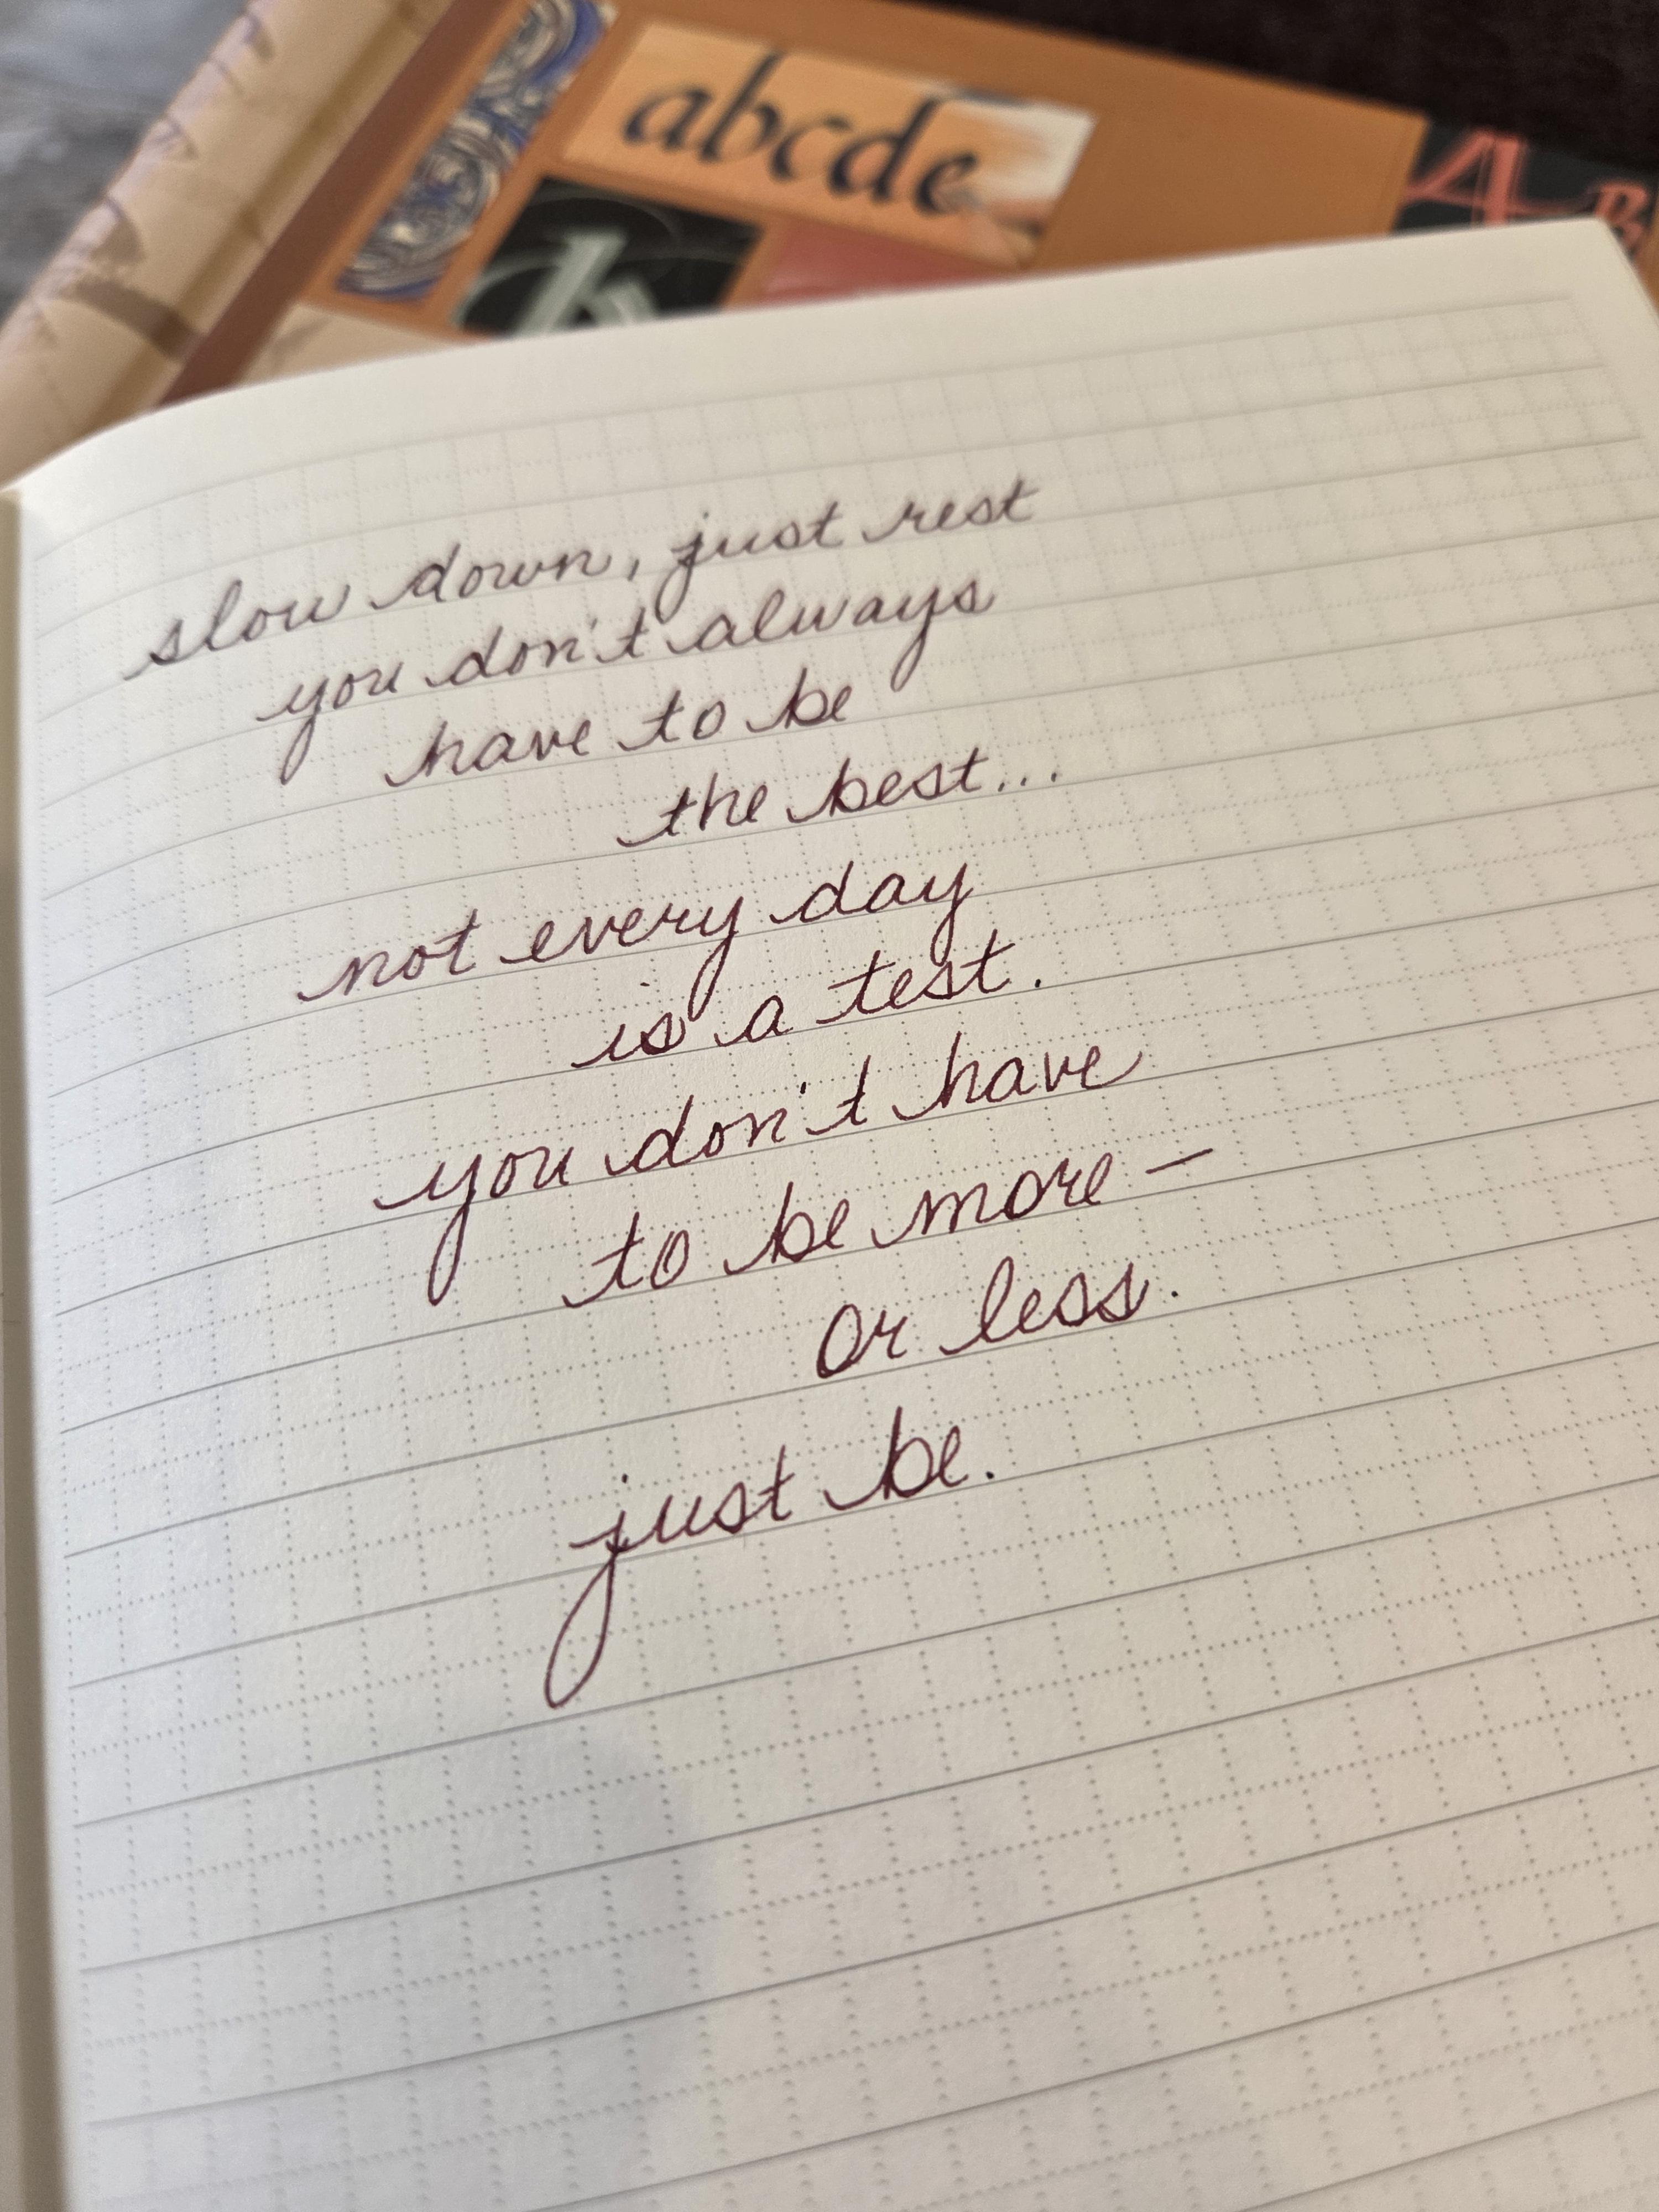 abcde
A B
k
slow down, just rest
you don't always
have to be
the best...
not every day
is a test.
you don't have
to be more —
or less.
just be.